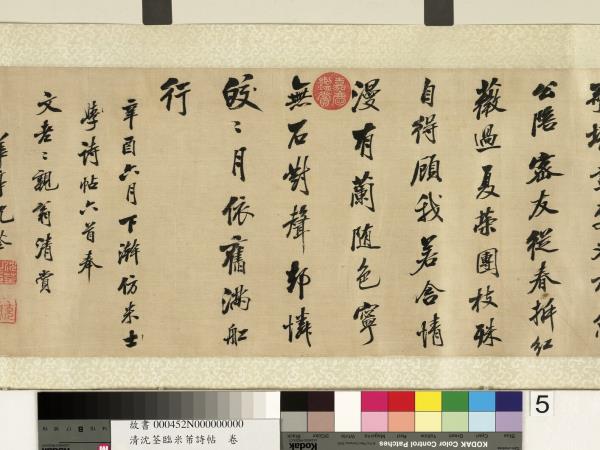 公隱密友從春拆紅
薇過夏榮團枝殊
自得顧我若含情
漫有蘭隨色寧
無石對聲却憐
皎〻月依舊滿船
行
辛酉六月下澣仿米
詩帖六首奉
文老〻親翁清賞
華亭沈荃
5
故書 000452N000000000
清沈荃臨米芾詩帖 卷
Kodak Color Control Patches